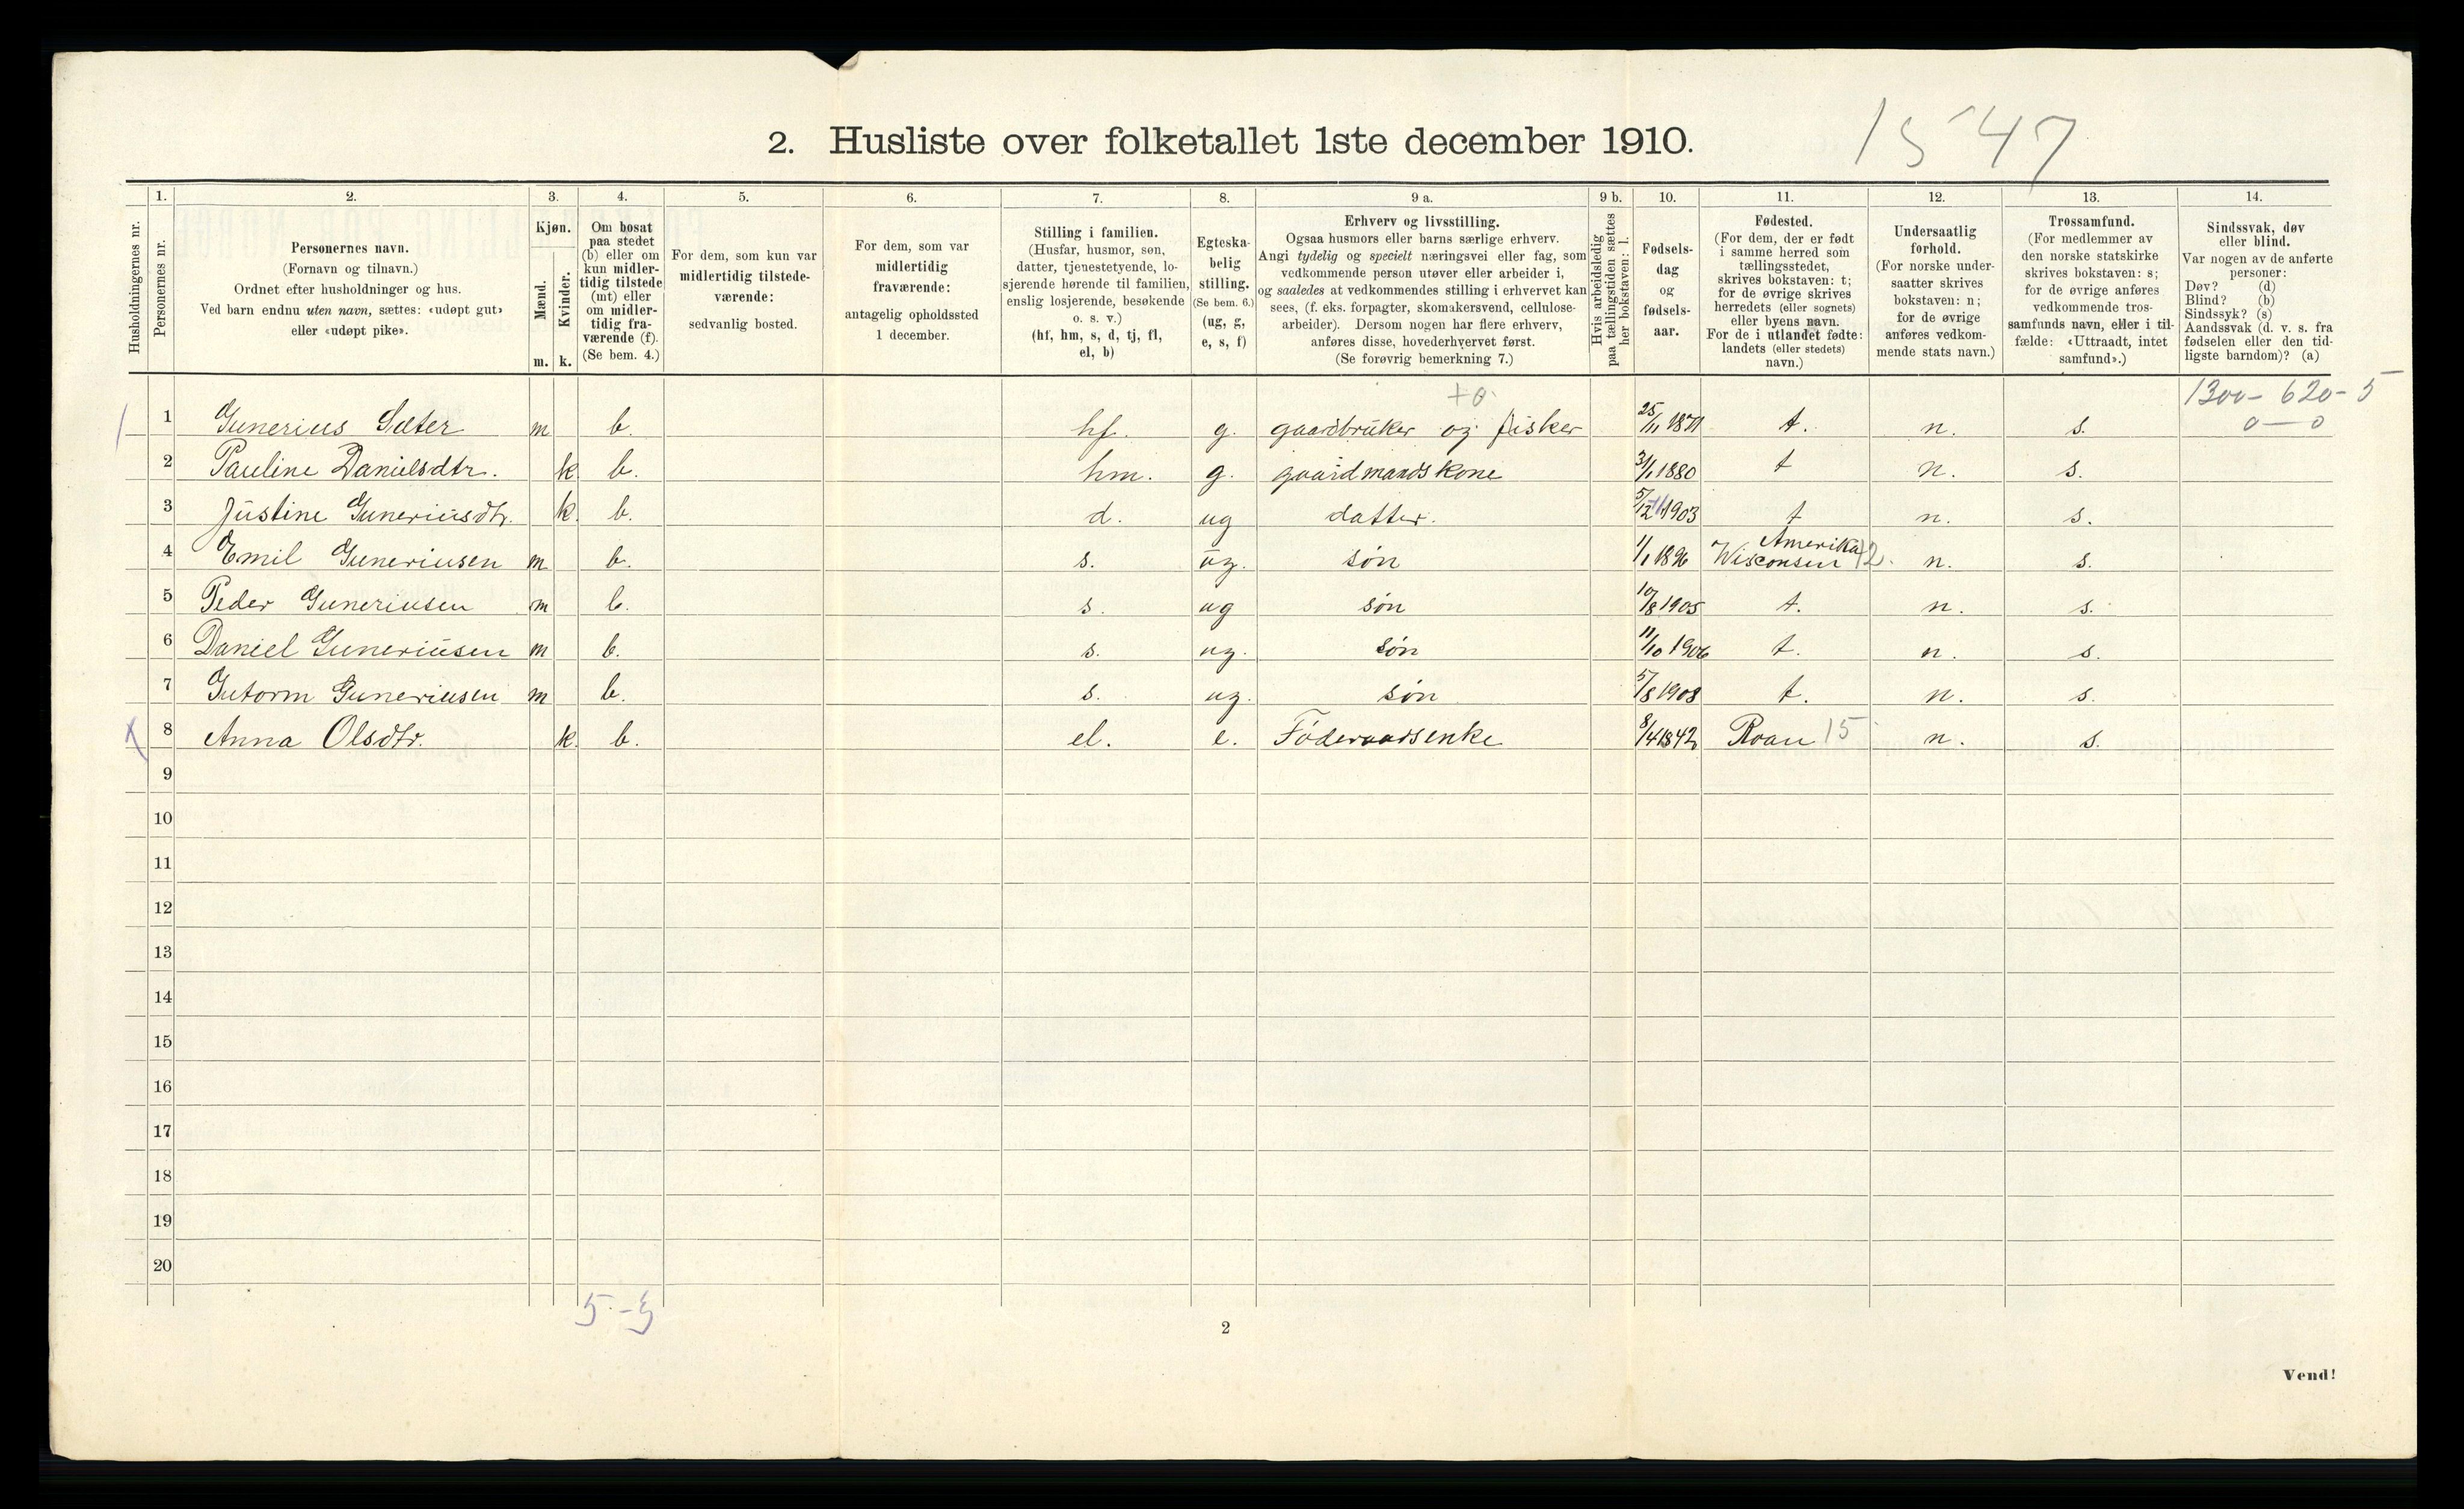 2. Husliste over folketallet 1ste december 1910.
1547
1. 2. 3. 4. 5. 6. 7. 8. 9 a. 9 b. 10. 11. 12. 13. 14.
Husholdningernes nr.
Personernes nr.
Personernes navn.
(Fornavn og tilnavn.)
Ordnet efter husholdninger og hus.
Ved barn endnu uten navn, sættes: «udøpt gut»
eller «udøpt pike».
Kjøn.
Mænd.
Kvinder.
m. k.
Om bosat
paa stedet
(b) eller om
kun midler-
tidig tilstede
(mt) eller
om midler-
tidig fra-
værende (f).
(Se bem. 4.)
For dem, som kun var
midlertidig tilstede-
værende:
sedvanlig bosted.
For dem, som var
midlertidig
fraværende:
antagelig opholdssted
1 december.
Stilling i familien.
(Husfar, husmor, søn,
datter, tjenestetyende, lo-
sjerende hørende til familien,
enslig losjerende, besøkende
o. s. v.)
(hf, hm, s, d, tj, fl,
el, b)
Egteska-
belig
stilling.
(Se bem. 6.)
(ug, g,
e, s, f)
Erhverv og livsstilling.
Ogsaa husmors eller barns særlige erhverv.
Angi tydelig og specielt næringsvei eller fag, som
vedkommende person utøver eller arbeider i,
og saaledes at vedkommendes stilling i erhvervet kan
sees, (f. eks. forpagter, skomakersvend, cellulose-
arbeider). Dersom nogen har flere erhverv,
anføres disse, hovederhvervet først.
(Se forøvrig bemerkning 7.)
Hvis arbeidsledig
paa tællingstiden sættes
her bokstaven: l.
Fødsels-
dag
og
fødsels-
aar.
Fødested.
(For dem, der er født
i samme herred som
tællingsstedet,
skrives bokstaven: t;
for de øvrige skrives
herredets (eller sognets)
eller byens navn.
For de i utlandet fødte:
landets (eller stedets)
navn.)
Undersaatlig
forhold.
(For norske under-
saatter skrives
bokstaven: n;
for de øvrige
anføres vedkom-
mende stats navn.)
Trossamfund.
(For medlemmer av
den norske statskirke
skrives bokstaven: s;
for de øvrige anføres
vedkommende tros-
samfunds navn, eller i til-
fælde: «Uttraadt, intet
samfund».)
Sindssvak, døv
eller blind.
Var nogen av de anførte
personer:
Døv? (d)
Blind? (b)
Sindssyk? (s)
Aandssvak (d. v. s. fra
fødselen eller den tid-
ligste barndom)? (a)
1300- 620- 5
0 — 0
1 Gunerius Sæter m b. hf. g. gaardbruker og fisker 25/1 1871 t. n. s.
2 Pauline Danielsdtr. k b. hm. g. gaardmandskone 31/1 1880 t n. s.
3 Justine Guneriusdtr. k. b. d. ug datter. 5/12 1903 t n. s.
4 Emil Guneriusen m b. s. ug. søn 1/1 1896 Amerika Wisconsin 12. n. s.
5 Peder Guneriusen m b. s. ug søn 10/8 1905 t. n. s.
6 Daniel Guneriusen m b. s. ug. søn 11/10 1906 t. n. s.
7 Gutorm Guneriusen m b. s. ug. søn 5/8 1908 t. n. s.
8 Anna Olsdtr. k. b. el. e. Føderaadsenke 8/4 1842 Roan 15 n. s.
9
10
11
12
13
14
15
16
17
18
19
20
5.-3
2
Vend!